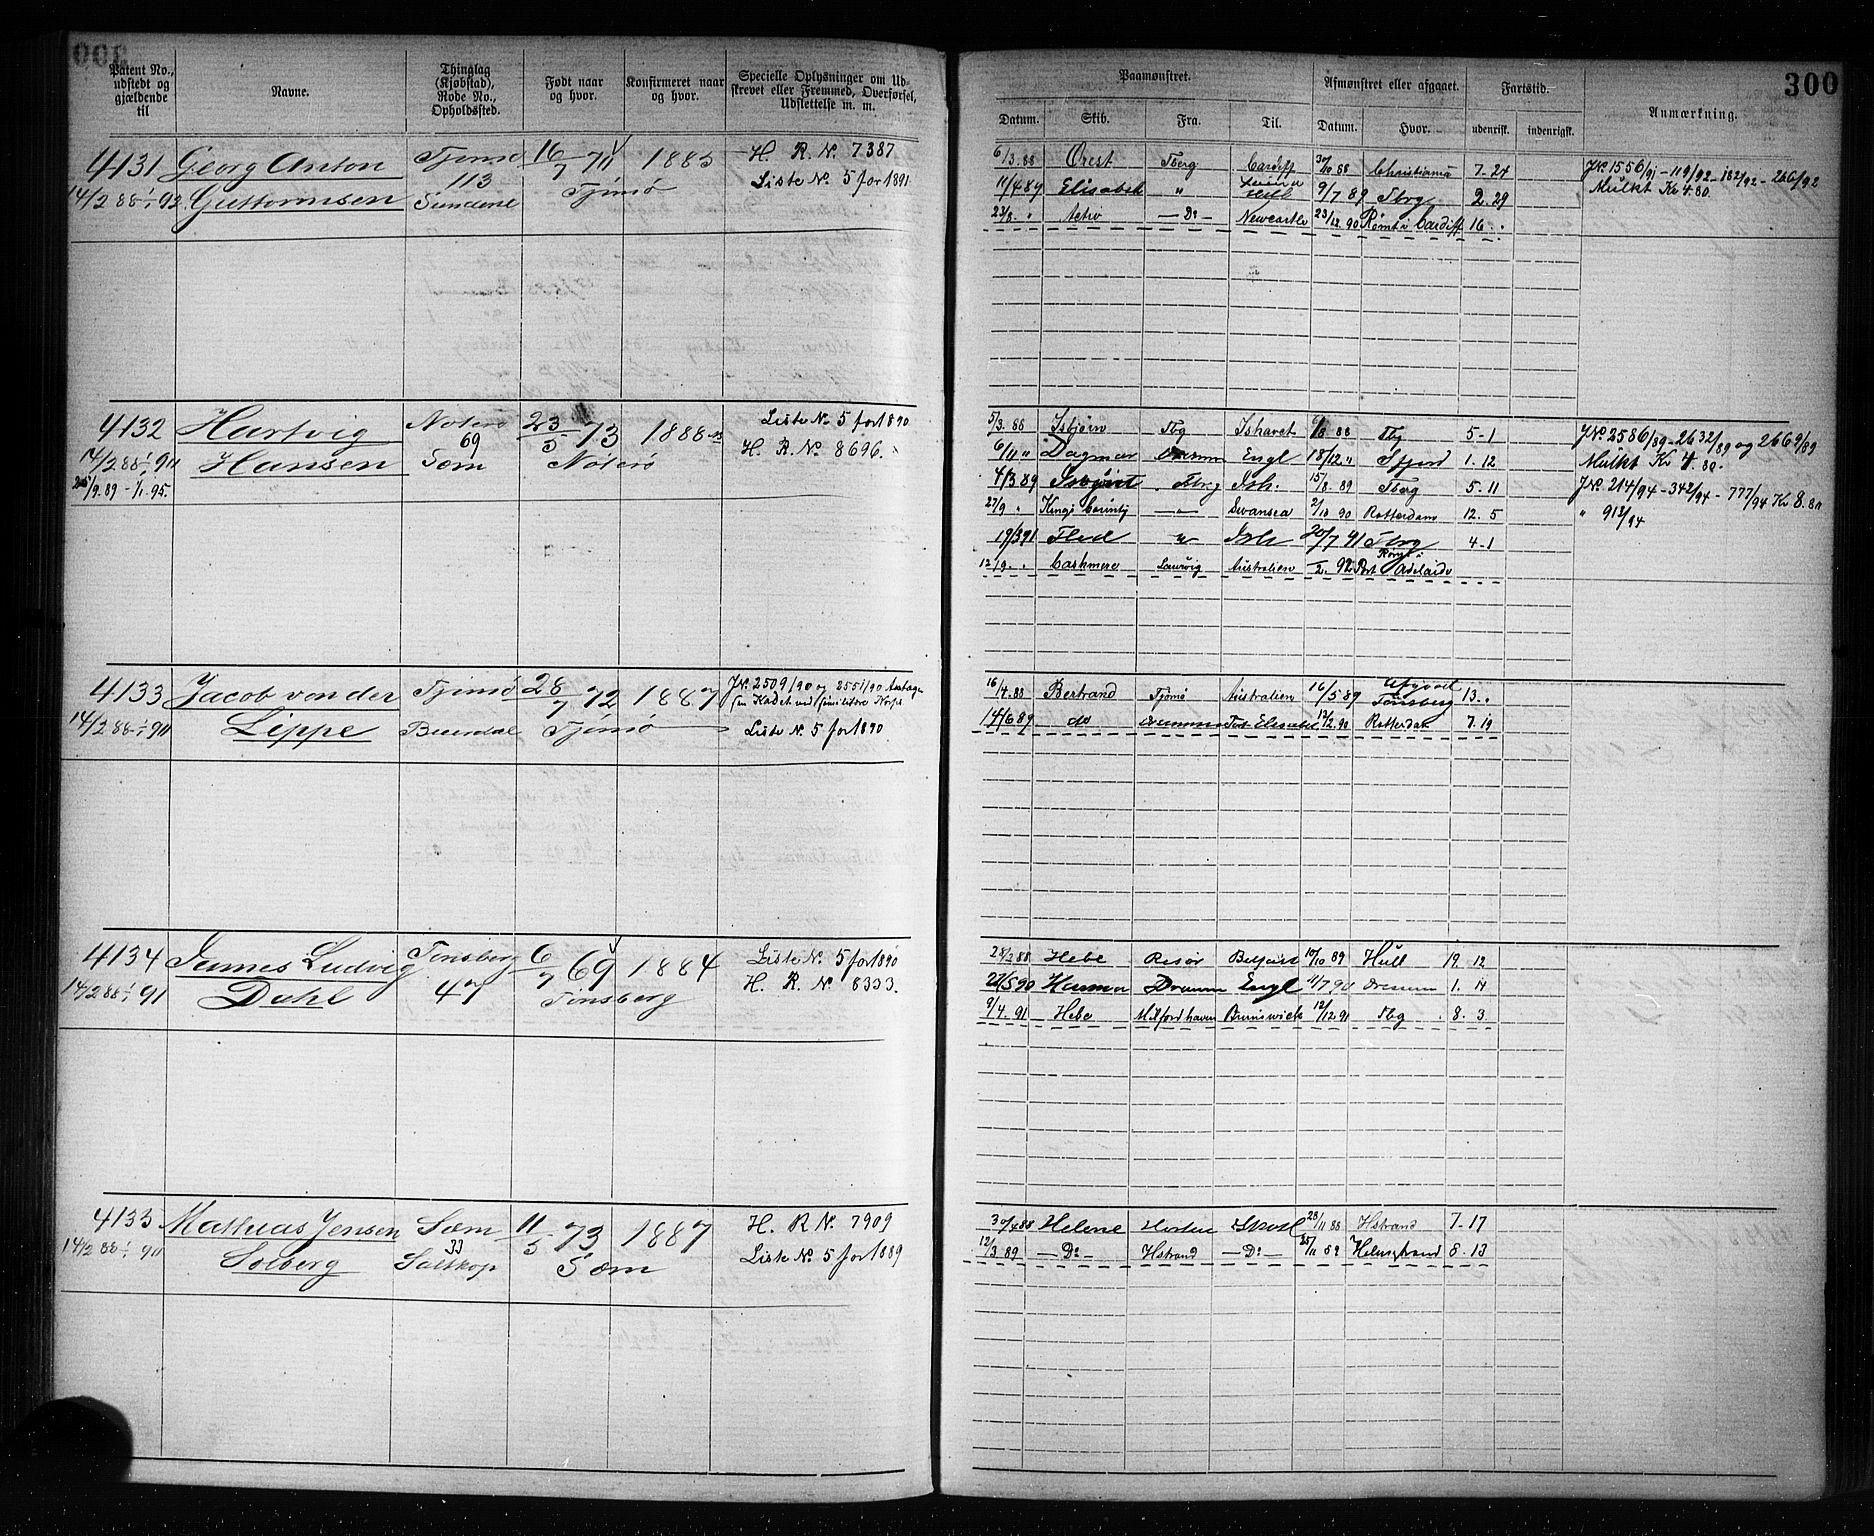 300
Patent No., udstedt og gjældende til
Navne.
Thinglag (Kjøbstad), Rode No., Opholdssted.
Født naar og hvor.
Konfirmeret naar og hvor.
Specielle Oplysninger om Udskrevet eller Fremmed, Overførsel, Udslettelse m. m.
Paamønstret.
Afmønstret eller afgaaet.
Fartstid.
Anmærkning.
Datum. Skib. Fra. Til. Datum. Hvor. udenrigsk. indenrigsk.
4131 Georg Anton Tjømø 16/7 71 1885 H. R. No. 7387
14/2 88-1/1 92 Guttormsen 113 Sundene Tjømø Liste No. 5 for 1891
6/3.88 Orest Tberg Cardiff 30/10 88 Christiania 7.24 JNo. 1556/91-119/92-182/92-266/92
11/4 89 Elisabeth " Hull 9/7 89 Tbrg 2.29 Mulkt Kr 4.80.
23/8. " Activ -Do- Newcastle 23/12 90 Rømt i Cardiff 16. .
4132 Hartvig Nøterø 23/5 73 1888 Liste No. 5 for 1890
14/2 88-1/1 90 Hansen 69 Sæm Nøterø H. R. No. 8696.
25/9.89 - 1/1.95.
5/3.88 Isbjørn Tbg Ishavet 6/8 88 Tbg 5-1 JNo. 2586/89-2632/89 og 2669/89
6/11 " Dagmar Dramm Engl 18/12 " Sfjord 1.12 Mulkt Kr 4.80.
4/3 89 Isbjørn Tbrg Ish. 15/8 89 Tbrg 5.11 JNo. 214/94-342/94-777/94 Kr 8.80
27/9 " Kings County -"- Swansea 2/10 90 Rotterdam 12.5 " 912/94
19/3 91 " Ish 20/7 91 Tbrg 4-1
12/9. . Cashmere Laurvig Australien /2.92 Rømt i Port Adelaide
4133 Jacob von der Tjømø 28/7 72 1887 JNo. 2509/90 og 2551/90 Antagen
14/2 88-1/1 90 Lippe Tjømø Liste No. 5 for 1890
16/4.88 Bertrand Tjømø Australien 16/5 89 Tønsberg 13. .
14/6 89 do Drammen Port Elisabet 12/2.90 Rotterdam 7.19
4134 James Ludvig Tønsberg 6/7 69 1884 Liste No. 5 for 1890
14/2 88-1/1 91 Dahl 47 Tønsberg H. R. No. 8333.
24/2 88 Hebe Risør Belfast 10/10 89 Hull 19.12
22/5 90 Dramm Engl 11/7 90 Dramm 1.14
9/4.91 Hebe Milfordhaven Brunswick 12/12 91 Tbg 8.3.
4135 Mathias Jensen Sæm 11/5 73 1887 H. R No. 7909
14/2 88-1/1 90 Solberg 33 Saltkop Sæm Liste No. 5 for 1889
30/4 88 Helene Horten Skotl 28/11 88 Hstrand 7-17
12/3.89 -Do- Hstrand -Do- 25/11 89 Holmestrand 8.13